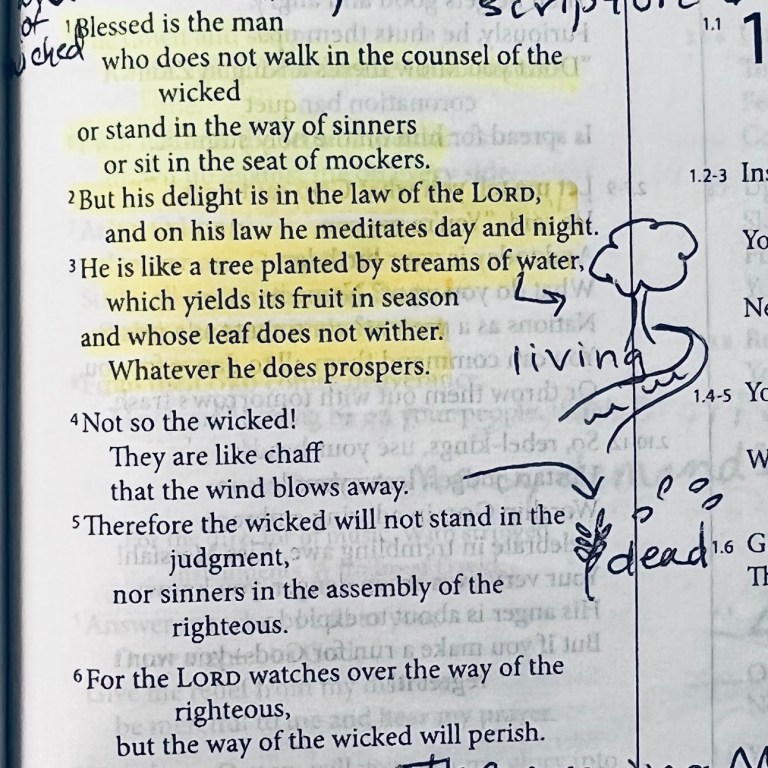 scripture
of
wicked
¹Blessed is the man
who does not walk in the counsel of the
wicked
or stand in the way of sinners
or sit in the seat of mockers.
²But his delight is in the law of the LORD,
and on his law he meditates day and night.
³He is like a tree planted by streams of water,
which yields its fruit in season
and whose leaf does not wither.
Whatever he does prospers.
living
⁴Not so the wicked!
They are like chaff
that the wind blows away.
⁵Therefore the wicked will not stand in the
judgment,
nor sinners in the assembly of the
righteous.
dead
⁶For the LORD watches over the way of the
righteous,
but the way of the wicked will perish.
1.1
1.2-3
Yo
1.4-5 Yo
W
1.6 G